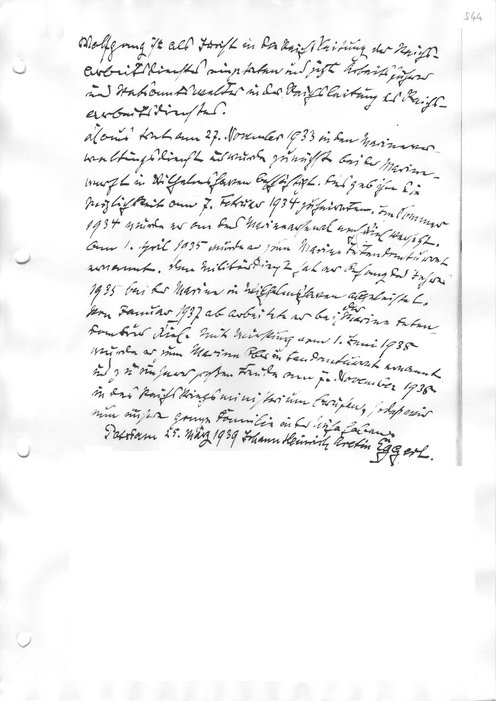 544
Wolfgang ist als Jurist in die Reichsleitung des Reichs-
arbeitsdienstes eingetreten und jetzt Arbeitsführer
und Stationsverwalter in der Reichsleitung des Reichs-
arbeitsdienstes.
trat am 27. November 1933 in den Marinever-
waltungsdienst und wurde zunächst bei der Marine-
werft in Wilhelmshaven beschäftigt. Das gab ihm die
Möglichkeit am 7. Februar 1934 zu heiraten. Im Sommer
1934 wurde er an das Marinearsenal nach Kiel versetzt.
Am 1. April 1935 wurde er zum Marine Intendanturrat
ernannt. Seine Militärdienst hat er Anfang des Jahres
1935 bei der Marine in Wilhelmshaven abgeleistet.
Vom Januar 1937 ab arbeitete er bei der Marine Inten-
dantur Kiel. Mit Wirkung vom 1. Juni 1938
wurde er zum Marine Oberintendanturrat ernannt
und zu unserer großen Freude am 7. November 1938
in das Reichskriegsministerium berufen, sodaß wir
nun unsere ganze Familie in der Nähe haben.
Potsdam 25. März 1939 Johann Heinrich Eggert.